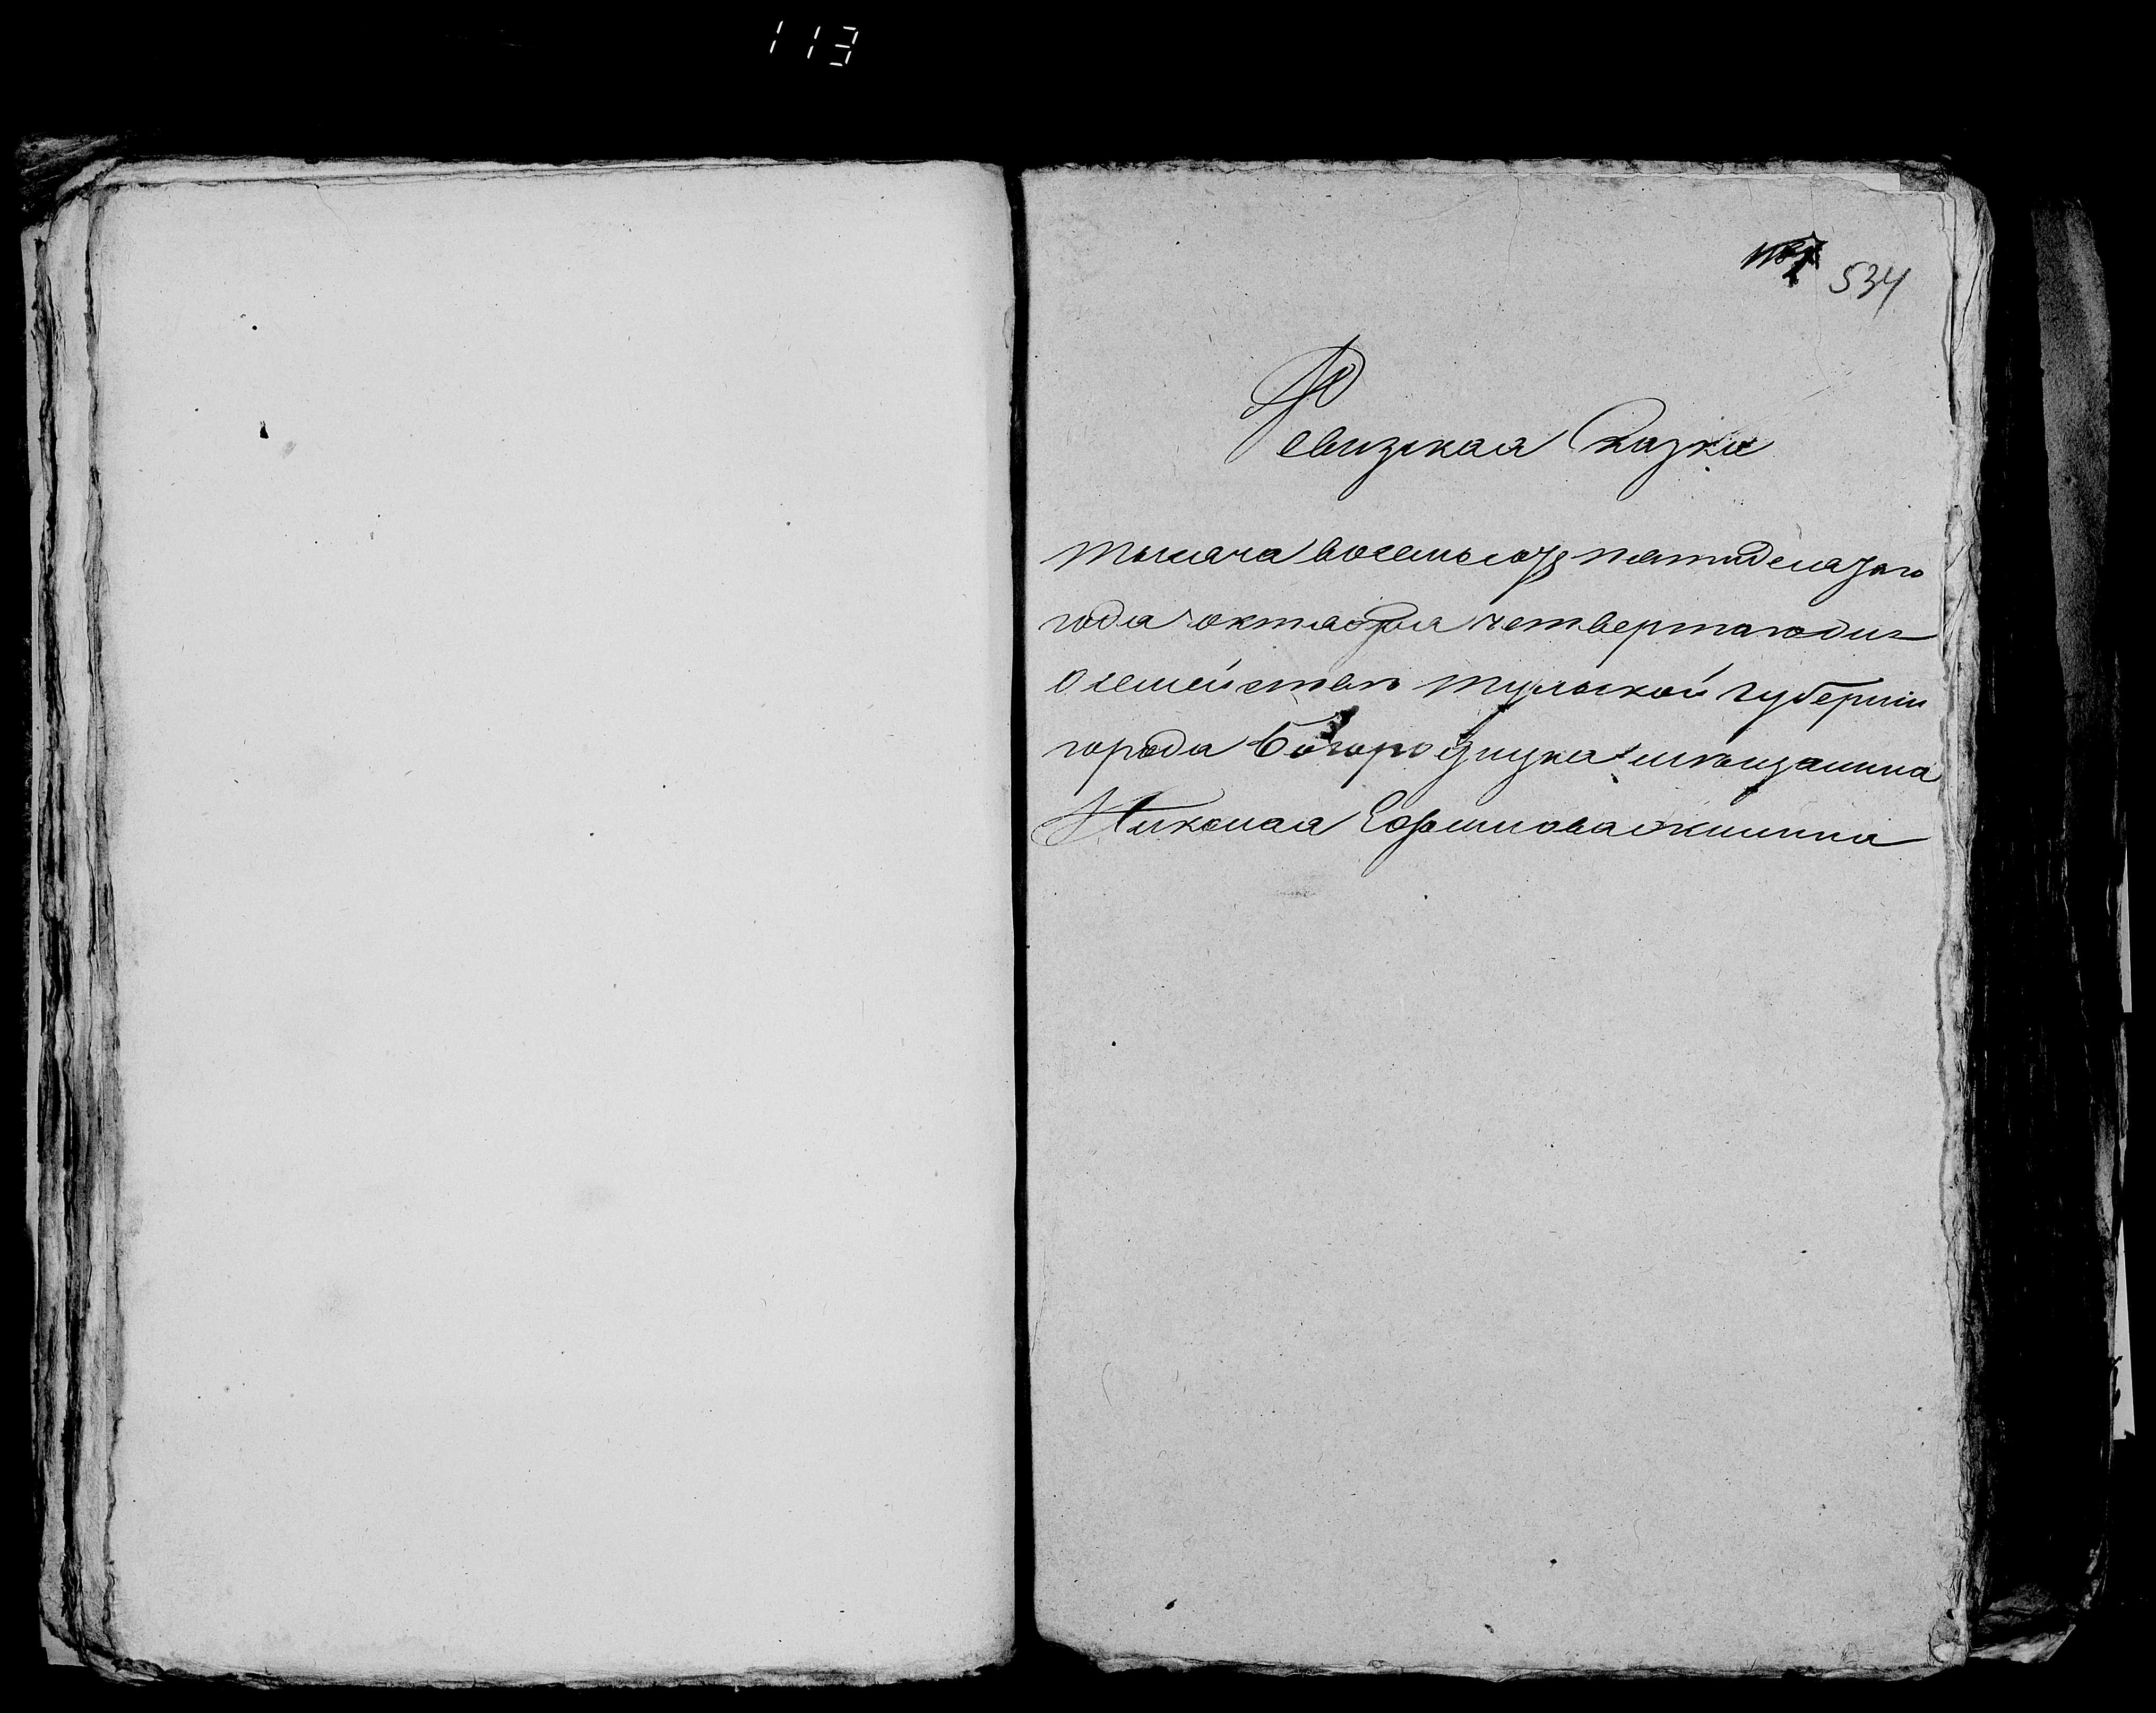 113
534
Ревизская Сказка
тысяча восемьсотъ пятидесятого
года октября четвертаго дня
о семействе Тульской губернiи
города Богородицка мещанина
Николая Ефимова